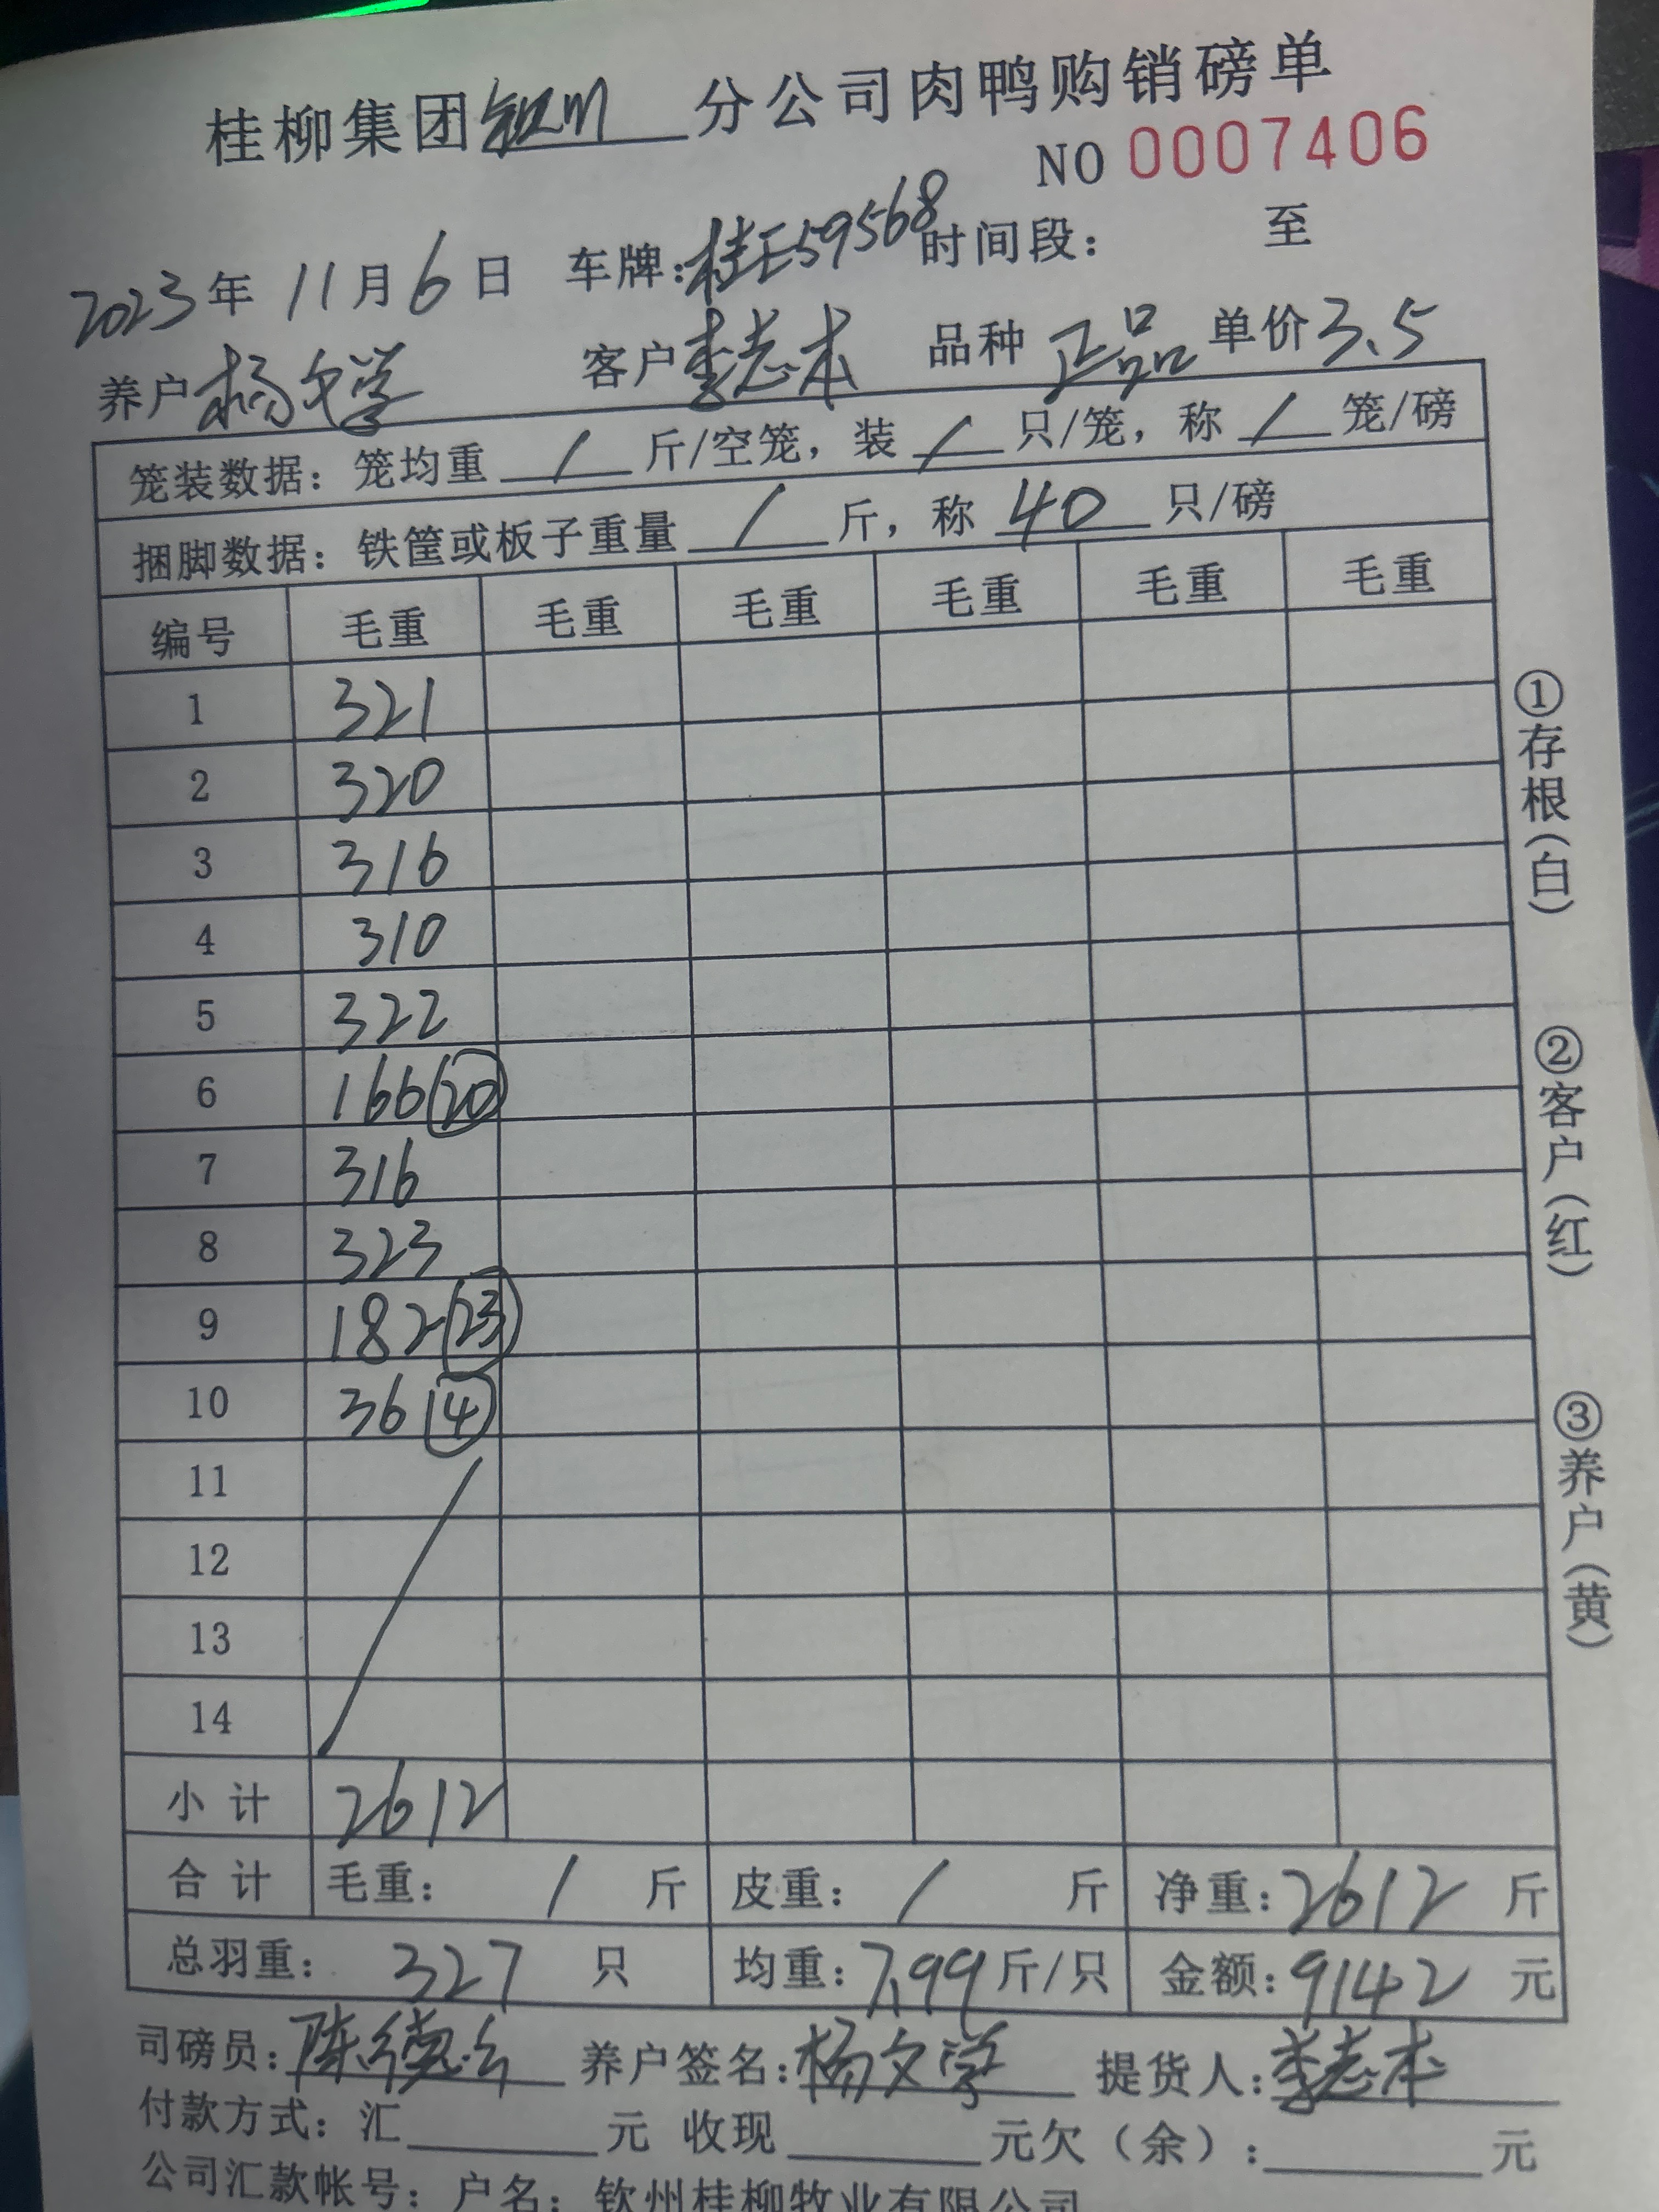 桂柳集团钦州分公司肉鸭购销磅单
NO 0007406
2023年 11月6日 车牌:桂E59568 时间段: 至
养户 杨文学 客户 李志本 品种 正品 单价 3.5
笼装数据: 笼均重 / 斤/空笼, 装 / 只/笼, 称 / 笼/磅
捆脚数据: 铁筐或板子重量 / 斤, 称 40 只/磅
编号 毛重 毛重 毛重 毛重 毛重 毛重
1 321
2 320
3 316
4 310
5 322
6 166 (20)
7 316
8 323
9 182 (23)
10 36 (4)
11
12
13
14
小计 2612
合计 毛重: / 斤 皮重: / 斤 净重: 2612 斤
总羽重: 327 只 均重: 7.99 斤/只 金额: 9142 元
司磅员: 陈德 养户签名: 杨文学 提货人: 李志本
付款方式: 汇 元 收现 元欠(余): 元
公司汇款帐号: 户名: 钦州桂柳牧业有限公司
①存根(白) ②客户(红) ③养户(黄)